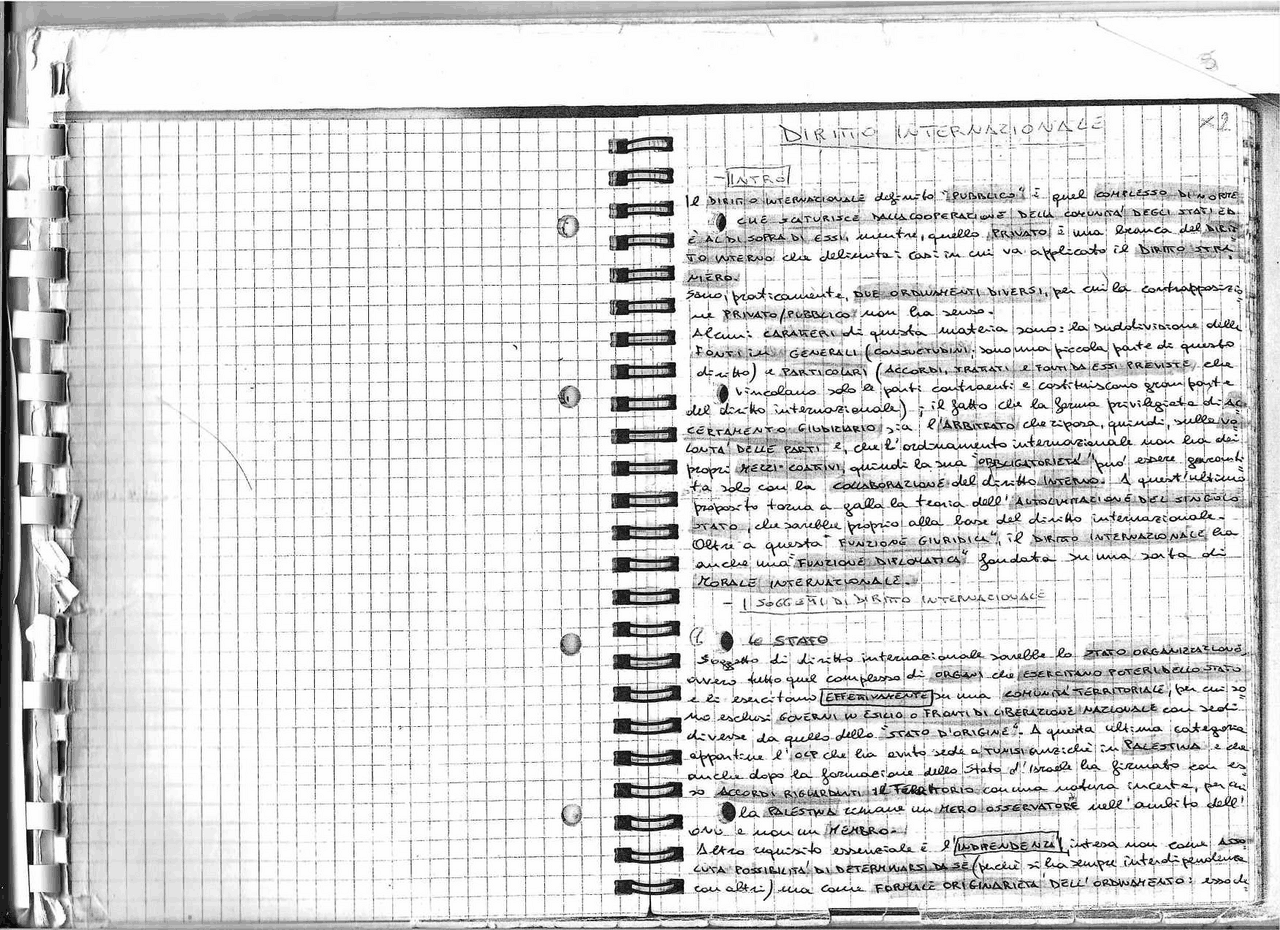 5
DIRITTO INTERNAZIONALE
×2
- INTRO
Il DIRITTO INTERNAZIONALE definito "PUBBLICO" è quel COMPLESSO DI NORME
CHE SCATURISCE DALLA COOPERAZIONE DELLA COMUNITÀ DEGLI STATI ED
È AL DI SOPRA DI ESSI, mentre, quello PRIVATO è una branca del DIRIT-
TO INTERNO che delinea i casi in cui va applicato il DIRITTO STRA-
NIERO.
Sono, praticamente, DUE ORDINAMENTI DIVERSI, per cui la contrapposizio-
ne PRIVATO/PUBBLICO non ha senso.
Alcuni CARATTERI di questa materia sono: la suddivisione delle
FONTI in GENERALI (CONSUETUDINI, sono una piccola parte di questo
diritto) e PARTICOLARI (ACCORDI, TRATTATI e FONTI DA ESSI PREVISTE, che
vincolano solo le parti contraenti e costituiscono gran parte
del diritto internazionale); il fatto che la forma privilegiata di AC-
CERTAMENTO GIUDIZIARIO sia l'ARBITRATO che riposa, quindi, sulla VO-
LONTÀ DELLE PARTI e, che l'ordinamento internazionale non ha dei
propri MEZZI COATTIVI, quindi la sua "OBBLIGATORIETÀ" può essere garanti-
ta solo con la COLLABORAZIONE del diritto INTERNO. A quest'ultimo
proposito torna a galla la teoria dell'AUTOLIMITAZIONE DEL SINGOLO
STATO, che sarebbe proprio alla base del diritto internazionale.
Oltre a questa "FUNZIONE GIURIDICA", il DIRITTO INTERNAZIONALE ha
anche una "FUNZIONE DIPLOMATICA" fondata su una sorta di
MORALE INTERNAZIONALE.
- I SOGGETTI DI DIRITTO INTERNAZIONALE
1. Lo STATO
Soggetto di diritto internazionale sarebbe lo STATO ORGANIZZAZIONE,
ovvero tutto quel complesso di ORGANI che ESERCITANO POTERI DELLO STATO
e li esercitano EFFETTIVAMENTE su una COMUNITÀ TERRITORIALE, per cui so-
no esclusi GOVERNI IN ESILIO o FRONTI DI LIBERAZIONE NAZIONALE con sedi
diverse da quello dello "STATO D'ORIGINE". A questa ultima categoria
appartiene l'OLP che ha avuto sede a TUNISI anziché in PALESTINA e che
anche dopo la formazione dello Stato d'Israele ha firmato con es-
so ACCORDI RIGUARDANTI il TERRITORIO con una natura incerta, per cui
la PALESTINA rimane un MERO OSSERVATORE nell'ambito dell'
ONU e non un MEMBRO.
Altro requisito essenziale è l'INDIPENDENZA, intesa non come ASSO-
LUTA POSSIBILITÀ DI DETERMINARSI DA SÉ (perché si ha sempre interdipendenza
con altri) ma come FORMALE ORIGINARIETÀ DELL'ORDINAMENTO: esso de-